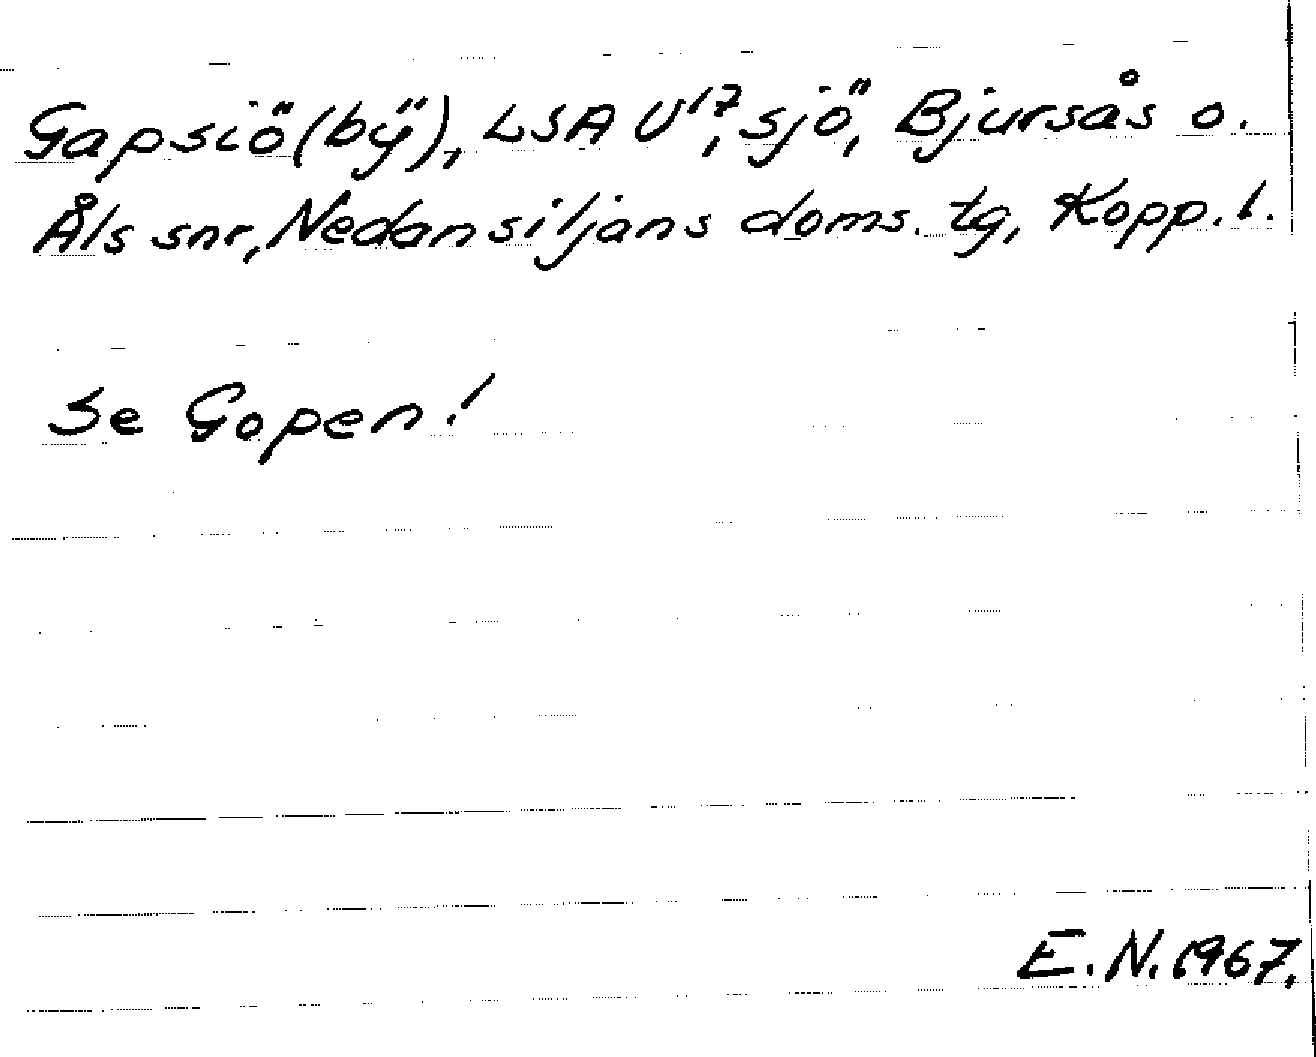 Gapsiö(bÿ), LSA U¹⁷, sjö, Bjursås o.
Åls snr, Nedansiljans doms. tg, Kopp. l.
Se Gopen!
E. N. 1967.